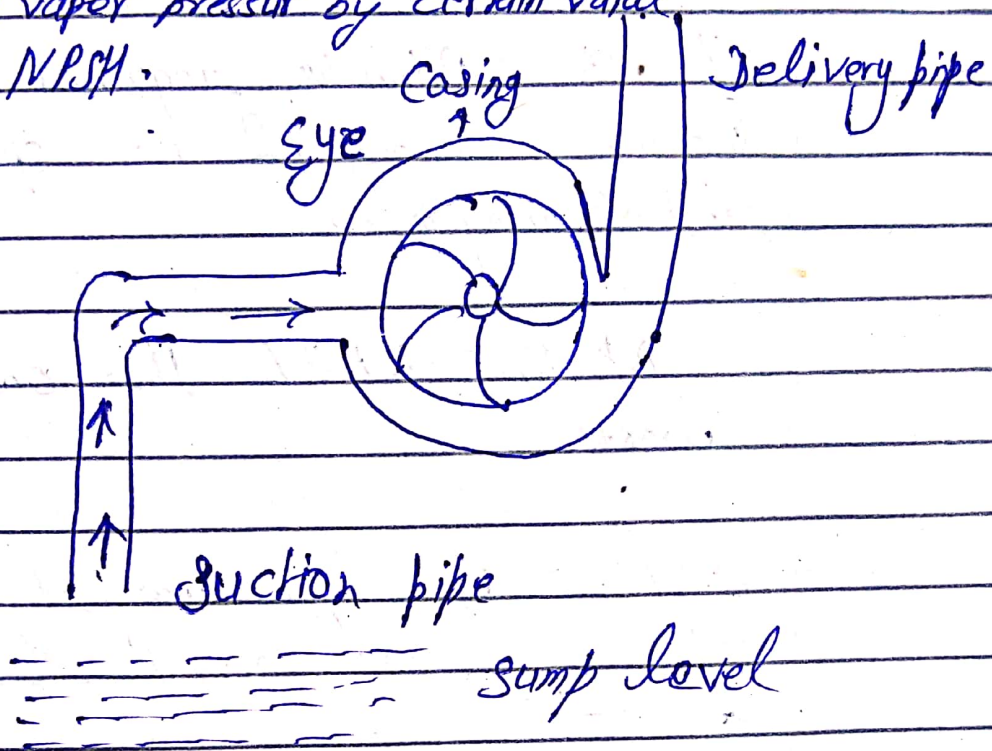 vapor pressur by certain value
NPSH.
Casing
Delivery pipe
Eye
Suction pipe
Sump level